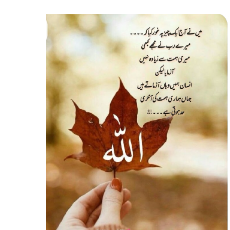 میں نے آج ایک چیز پر غور کیا کہ ۔۔۔۔
میرے رب نے مجھے کبھی
میری ہمت سے زیادہ نہیں
آزمایا لیکن
انسان ہمیں وہاں آزماتے ہیں
جہاں ہماری ہمت کی آخری
حد ہوتی ہے ۔۔۔
الله